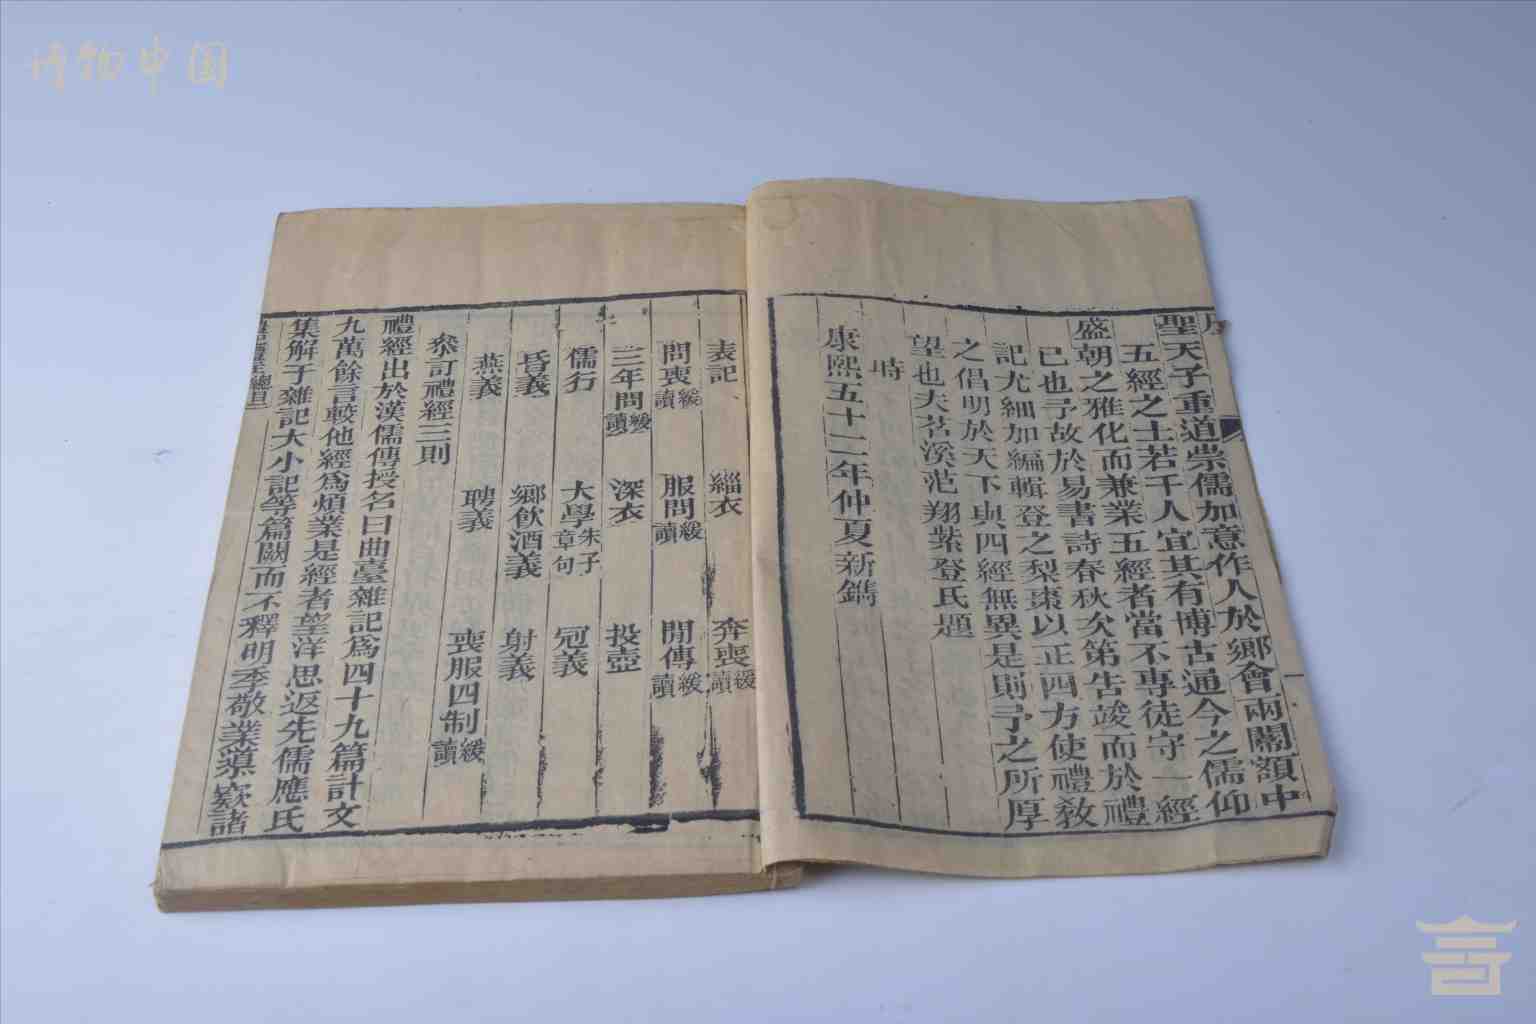 博物中国
序
聖天子重道崇儒加意作人於鄉會兩闈額中
五經之士若干人宜其有博古通今之儒仰
盛朝之雅化而兼業五經者當不專徒守一經
已也予故於易書詩春秋次第告竣而於禮
記尤細加編輯登之梨棗以正四方使禮教
之倡明於天下與四經無異是則予之所厚
望也夫苕溪范翔紫登氏題
時
康熙五十二年仲夏新鐫
表記 緇衣 奔喪緩讀
問喪緩讀 服問緩讀 間傳緩讀
三年問緩讀 深衣 投壺
儒行 大學朱子章句 冠義
昏義 鄉飲酒義 射義
燕義 聘義 喪服四制緩讀
叅訂禮經三則
禮經出於漢儒傳授名曰曲臺雜記爲四十九篇計文
九萬餘言較他經爲煩業是經者望洋思返先儒應氏
集解于雜記大小記等篇闕而不釋明季敬業導窾諸